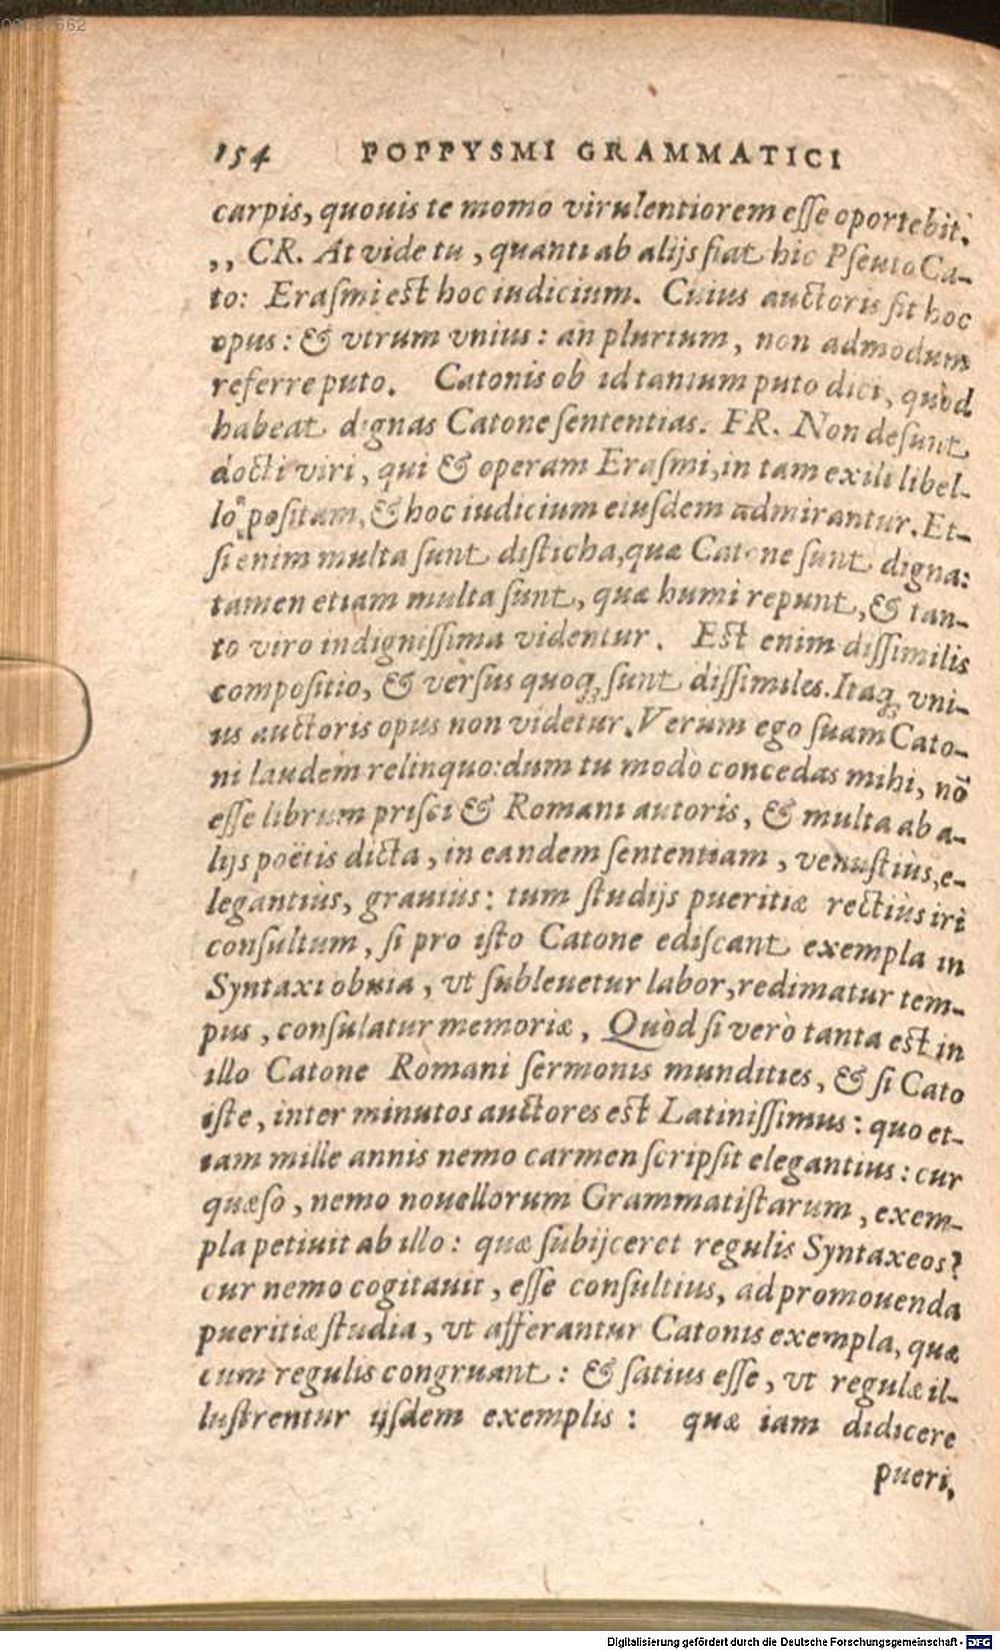 154 POPPYSMI GRAMMATICI
carpis, quouis te momo virulentiorem esse oportebit.
,, CR. At vide tu, quanti ab alijs fiat hic Pseuto Ca-
to: Erasmi est hoc iudicium. Cuius auctoris sit hoc
opus: & vtrum vnius: an plurium, non admodum
referre puto. Catonis ob id tantum puto dici, quòd
habeat dignas Catone sententias. FR. Non desunt
docti viri, qui & operam Erasmi, in tam exili libel-
lo positam, & hoc iudicium eiusdem admirantur. Et-
si enim multa sunt disticha, quæ Catone sunt digna:
tamen etiam multa sunt, quæ humi repunt, & tan-
to viro indignissima videntur. Est enim dissimilis
compositio, & versus quoq; sunt dissimiles. Itaq; vni-
us auctoris opus non videtur. Verum ego suam Cato-
ni laudem relinquo: dum tu modò concedas mihi, nõ
esse librum prisci & Romani autoris, & multa ab a-
lijs poëtis dicta, in eandem sententiam, venustiùs, e-
legantius, grauiùs: tum studijs pueritiæ rectiùs iri
consultum, si pro isto Catone ediscant exempla in
Syntaxi obuia, vt subleuetur labor, redimatur tem-
pus, consulatur memoriæ, Quòd si verò tanta est in
illo Catone Romani sermonis mundities, & si Cato
iste, inter minutos auctores est Latinissimus: quo et-
iam mille annis nemo carmen scripsit elegantius: cur
quæso, nemo nouellorum Grammatistarum, exem-
pla petiuit ab illo: quæ subijceret regulis Syntaxeos?
cur nemo cogitauit, esse consultius, ad promouenda
pueritiæ studia, vt afferantur Catonis exempla, quæ
cum regulis congruant: & satius esse, vt regulæ il-
lustrentur ijsdem exemplis: quæ iam didicere
pueri,
Digitalisierung gefördert durch die Deutsche Forschungsgemeinschaft - DFG